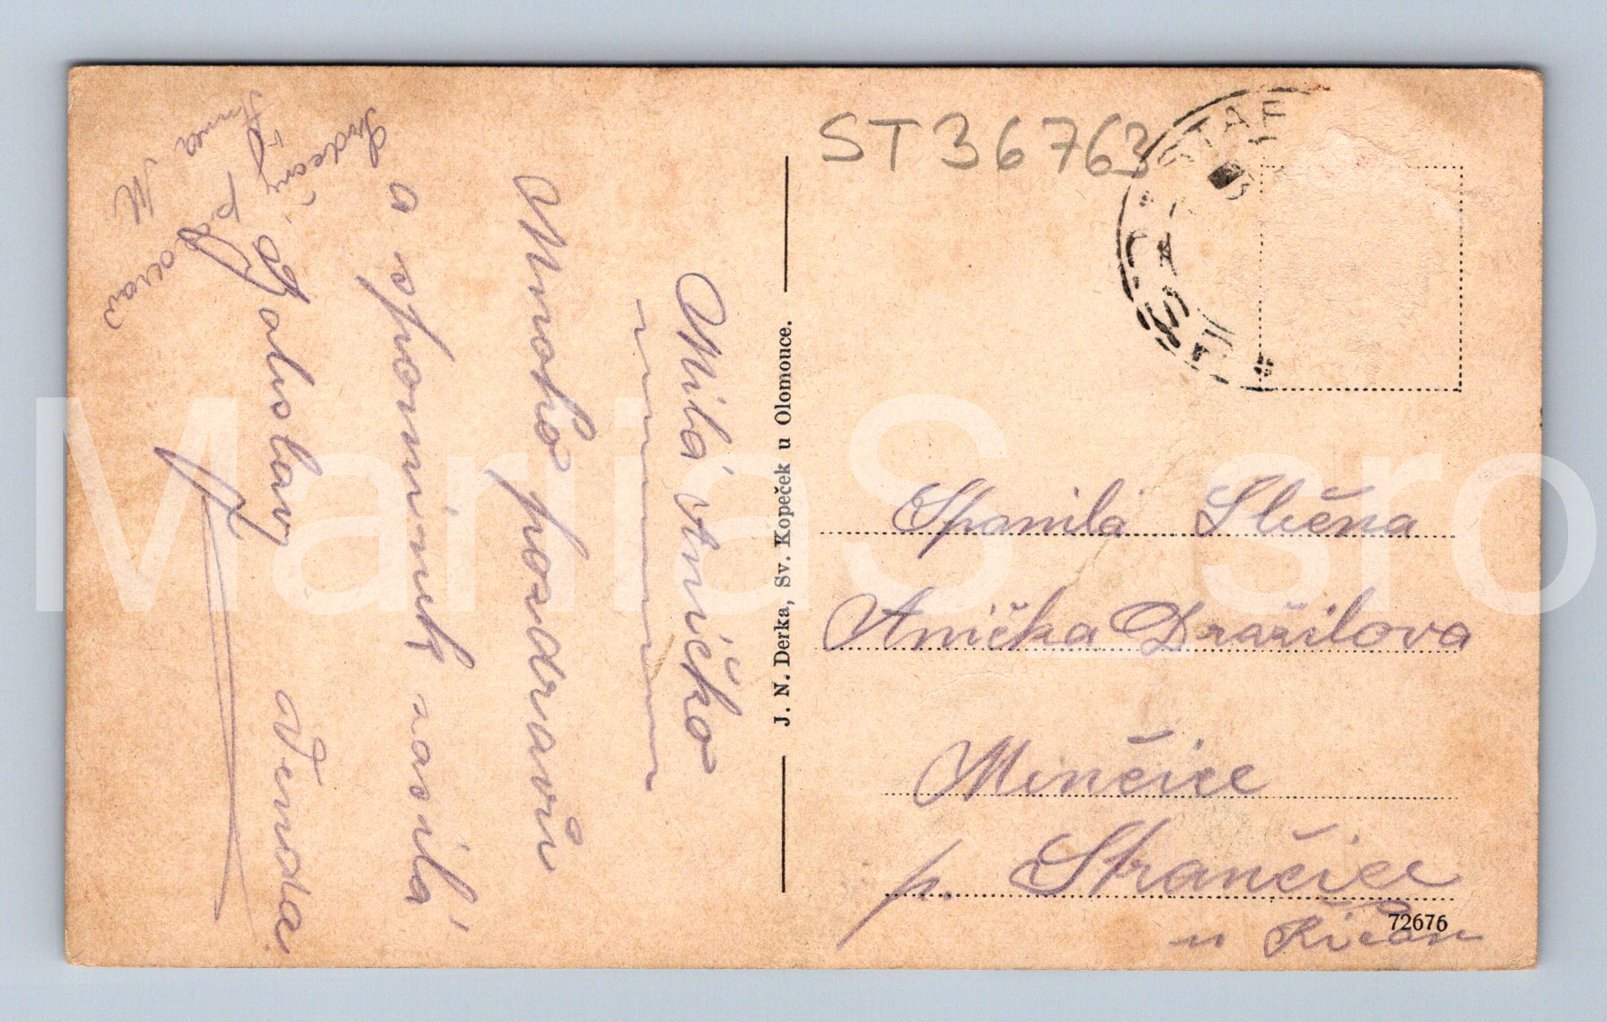 ST 36763
STAF
Milá Aničko
Mnoho pozdravů
a spomínek zasílá
Boluslav Venda.
Srdečný pozdrav
Anna M
J. N. Derka, Sv. Kopeček u Olomouce.
Spanilá Slečna
Anička Dražilova
Menčice
p. Strančice
u Říčan
72676
MariaS sro